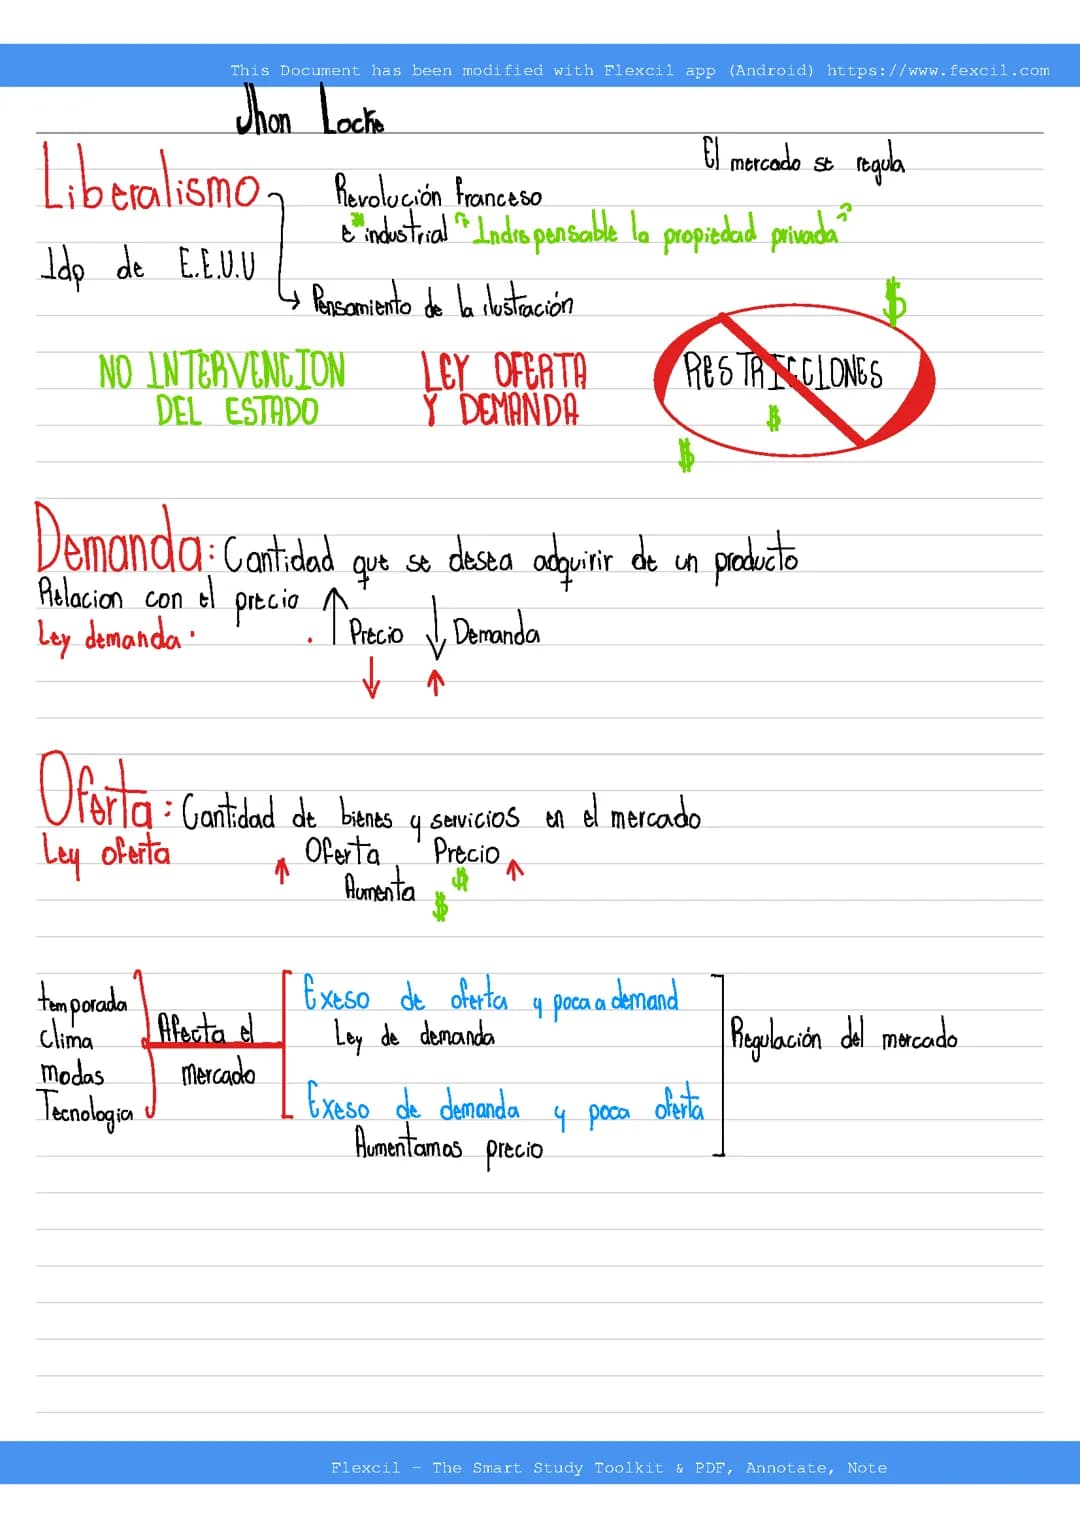 This Document has been modified with Flexcil app (Android) https://www.fexcil.com
Jhon Locke
El mercado se regula
Liberalismo
Revolución Franceso
e industrial "Indispensable la propiedad privada"
Idp de E.E.U.U
Pensamiento de la ilustración
NO INTERVENCION
DEL ESTADO
LEY OFERTA
Y DEMANDA
RESTRICCIONES
$
$
$
Demanda: Cantidad que se desea adquirir de un producto
Relacion con el precio ↑ Precio ↓ Demanda
Ley demanda
↓ ↑
Oferta: Cantidad de bienes y servicios en el mercado
Ley oferta ↑ Oferta Precio ↑
Aumenta $ $
temporada
clima
modas
Tecnologia
Afecta el
mercado
Exeso de oferta y poca a demand
Ley de demanda
Exeso de demanda y poca oferta
Aumentamos precio
Regulación del mercado
Flexcil - The Smart Study Toolkit & PDF, Annotate, Note